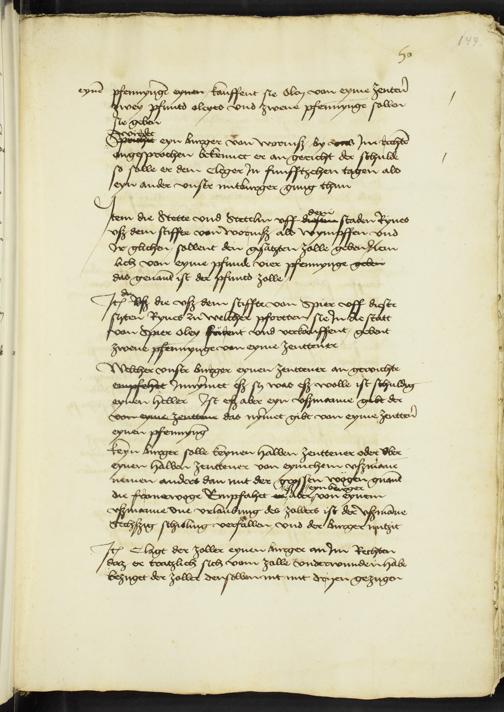 149
50
eynē pfennynge eynen kauffent sie oley von eyme zenteñ
zwey pfundt oleyes vnd zwene pfennynge sollen
sie geben
wirdet
eyn burger von wormß by Im Rechten
angesprochen bekennet er an gericht der schulde
so solle er dem cleger In funfftzehen tagen als
eyn ander vnser mitburger gnug thun
Item die Stette vnd Stettlin vff staden Rynes
vß dem stiffte von wormß als wympffen vnd
Ir glichen sollent den gesatzten zolle geben Nem
lich von eyme pfunde vier pfennynge geben
das genant ist der pfundt zolle
die vß dem stiffte von Spier vff disser
syten Rynes zu welcher pfortten sie In die statt
von Spier oley furent vnd verkeuffent gebent
zwene pfennynge von eyme zenttener
Welcher vnser burger eynen zenttener an gewichte
Innymet eß sy was eß wolle ist schuldig
eynen heller Ist eß aber eyn vßmanne gibt der
von eyme zenttener das nymet gibt von eyme zenttener
eynen pfennyng
keyn burger solle keynen halben zenttener oder vber
eynen halben zenttener von eynichem vßmanne
nemen anders dan mit der grossen wogen genant
die fronewoge Empfahet aber von eynem
vßmanne one verlaubung des zollers ist der vßmanne
sechßzig schilling verfallen vnd der burger
Clagt der zoller eynen burger an Im Rechten
das er sich vom zolle vnderwunden habe
bezuget der zoller denselben mit mit dryen gezugen